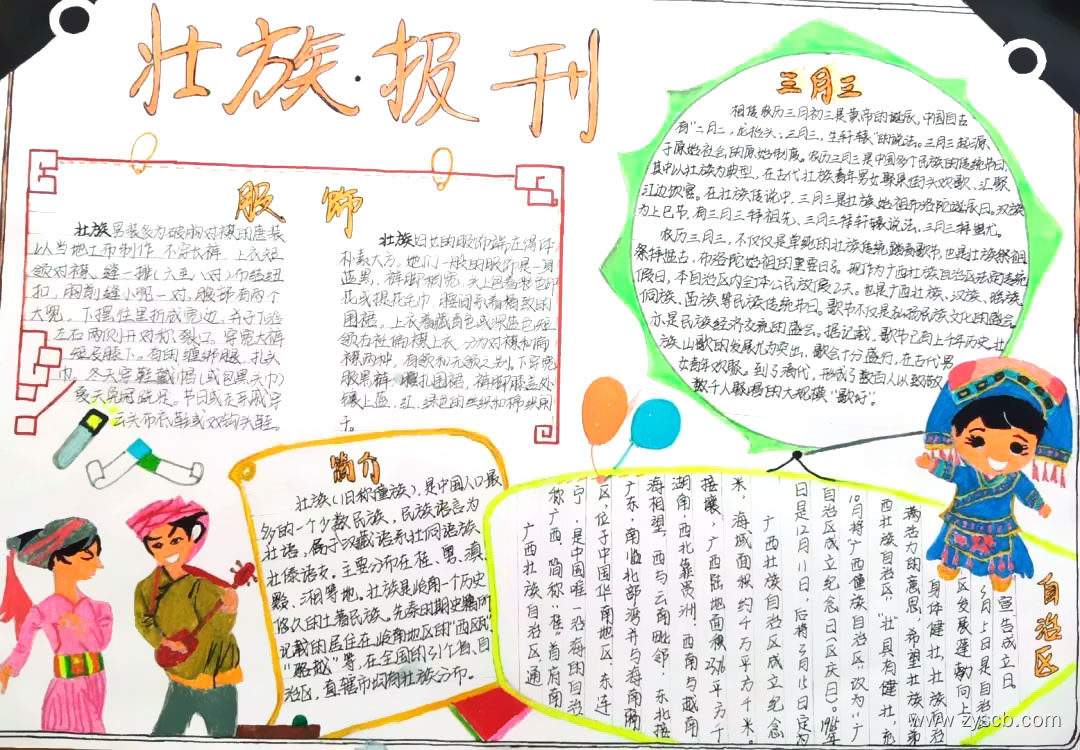 壮族·报刊
服饰
壮族男装多为破胸对襟的唐装
以当地土布制作,不穿长裤,上衣短
领对襟,缝一排(六至八对)布结纽
扣,胸前缝小兜一对,腹部有两个
大兜,下摆往里折成宽边,并于下沿
左右两侧开对称裂口。穿宽大裤
短及膝下。有的缠绑腿,扎头
巾。冬天穿鞋戴帽(或包黑头巾)
夏天免冠跣足。节日或走亲戚穿
云头布底鞋或双钩头鞋。
壮族妇女的服饰端庄得体,
朴素大方。她们一般的服饰是一身
蓝黑,裤脚稍宽,头上包着彩色印
花或提花毛巾,腰间系着精致的
围裙。上衣着藏青色或深蓝色短
领右衽偏襟上衣,分为对襟和偏
襟两种,有领和无领之别。下穿宽
服黑裤,腰扎围裙,裤脚膝盖处
镶上蓝、红、绿色的丝织和棉织阑
干。
三月三
相传农历三月初三是黄帝的诞辰,中国自古
有"二月二,龙抬头;三月三,生轩辕"的说法。三月三起源
于原始社会的原始制度。农历三月三是中国多个民族的传统节日,
其中以壮族为典型,在古代壮族青年男女聚集街头欢歌、汇聚
江边饮宴。在壮族传说中,三月三是壮族始祖布洛陀诞辰日。汉族
为上巳节,有三月三拜祖先,三月三拜轩辕说法,三月三拜祖尤。
农历三月三,不仅仅是单纯的壮族传统踏青歌节,也是壮族祭祖
祭拜盘古,布洛陀始祖的重要日子。现作为广西壮族自治区法定传统
假日,本自治区内全体公民放假2天。也是广西壮族、汉族、瑶族、
侗族、苗族等民族传统节日。歌节不仅是弘扬民族文化的盛会。
亦是民族经济交流的盛会。据记载,歌节已有上千年历史壮
族,山歌的发展尤为突出,歌会十分盛行,在古代男
女青年欢歌。到了清代,形成了数百人以致高致
数千人聚唱的大规模"歌圩"。
简介
壮族(旧称僮族),是中国人口最
多的一个少数民族,民族语言为
壮语,属于汉藏语系壮侗语族
壮傣语支。主要分布在桂、粤、滇、
黔、湘等地。壮族是岭南一个历史
悠久的土著民族。先秦时期史籍所
记载的居住在岭南地区的"西瓯"、
"骆越"等,在全国的31个省、自
治区,直辖市均有壮族分布。
自治区
广西壮族自治区通
称广西,简称"桂"首府南
宁,是中国唯一沿海的自治
区,位于中国华南地区,东连
广东,南临北部湾并与海南隔
海相望,西与云南毗邻,东北接
湖南,西北靠贵州,西南与越南
接壤,广西陆地面积23.76平方千
米,海域面积约4万平方千米。
广西壮族自治区成立纪念
日是12月11日。后将3月15日定为
自治区成立纪念日(区庆日)。1965年
10月将"广西僮族自治区"改为"广
西壮族自治区","壮"具有健壮,充
满活力的意思,希望壮族兄弟
身体健壮,壮族自治
区发展蓬勃向上
3月5日是自治
宣告成立日。
www.zyscb.com